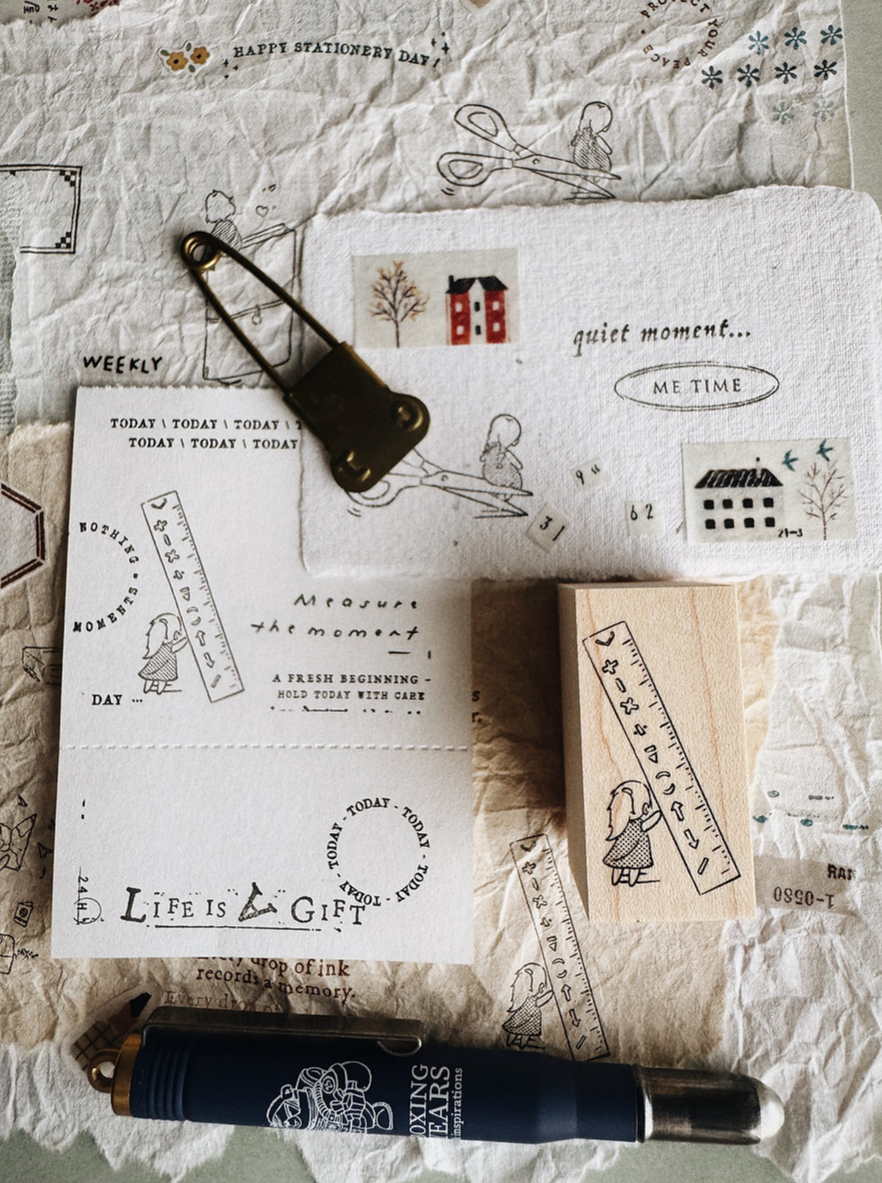 HAPPY STATIONERY DAY!
PROTECT YOUR PEACE
quiet moment...
ME TIME
94
31
62
21-3
WEEKLY
TODAY \ TODAY \ TODAY \
TODAY \ TODAY \ TODAY
NOTHING
MOMENTS
Measure
the moment
A FRESH BEGINNING -
HOLD TODAY WITH CARE
DAY ...
TODAY - TODAY - TODAY - TODAY - TODAY -
24H
LIFE IS A GIFT
drop of ink
records a memory.
Every drop of
1-0580
OXING
EARS
inspirations